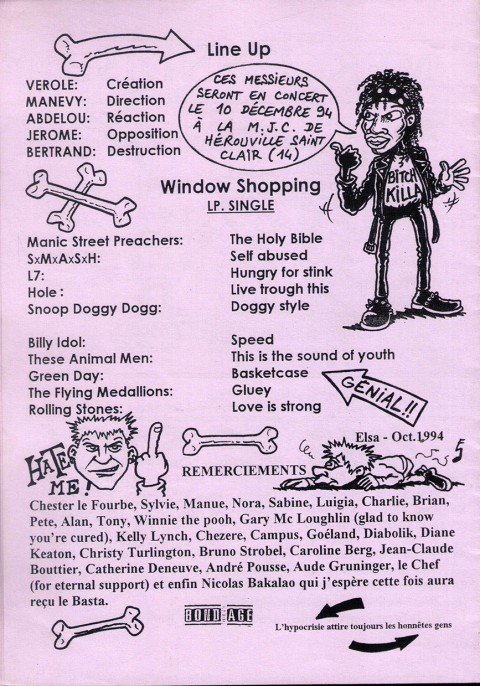 Line Up
VEROLE: Création
MANEVY: Direction
ABDELOU: Réaction
JEROME: Opposition
BERTRAND: Destruction
CES MESSIEURS
SERONT EN CONCERT
LE 10 DÉCEMBRE 94
À LA M.J.C. DE
HÉROUVILLE SAINT
CLAIR (14)
BITCH
KILLA
Window Shopping
LP. SINGLE
Manic Street Preachers: The Holy Bible
SxMxAxSxH: Self abused
L7: Hungry for stink
Hole : Live trough this
Snoop Doggy Dogg: Doggy style
Billy Idol: Speed
These Animal Men: This is the sound of youth
Green Day: Basketcase
The Flying Medallions: Gluey
Rolling Stones: Love is strong
GÉNIAL!!
HATE
ME!
Elsa - Oct.1994
REMERCIEMENTS
Chester le Fourbe, Sylvie, Manue, Nora, Sabine, Luigia, Charlie, Brian,
Pete, Alan, Tony, Winnie the pooh, Gary Mc Loughlin (glad to know
you're cured), Kelly Lynch, Chezere, Campus, Goéland, Diabolik, Diane
Keaton, Christy Turlington, Bruno Strobel, Caroline Berg, Jean-Claude
Bouttier, Catherine Deneuve, André Pousse, Aude Gruninger, le Chef
(for eternal support) et enfin Nicolas Bakalao qui j'espère cette fois aura
reçu le Basta.
BOND AGE
L'hypocrisie attire toujours les honnêtes gens